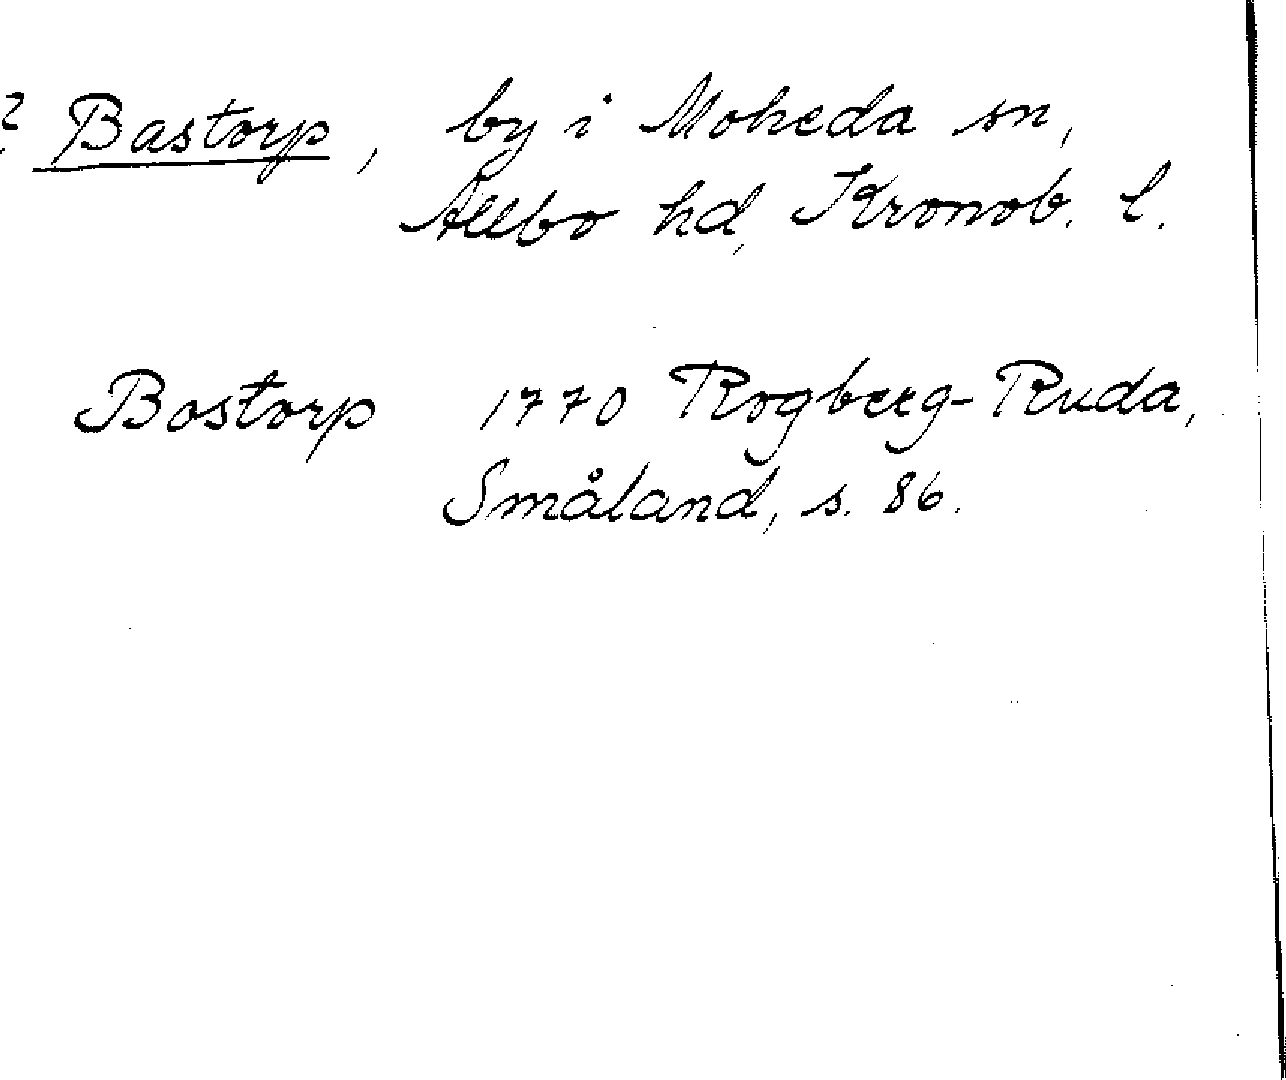 ? Bastorp, by i Moheda sn,
Allbo hd, Kronob. l.
Bostorp 1770 Rogberg-Ruda,
Småland, s. 86.